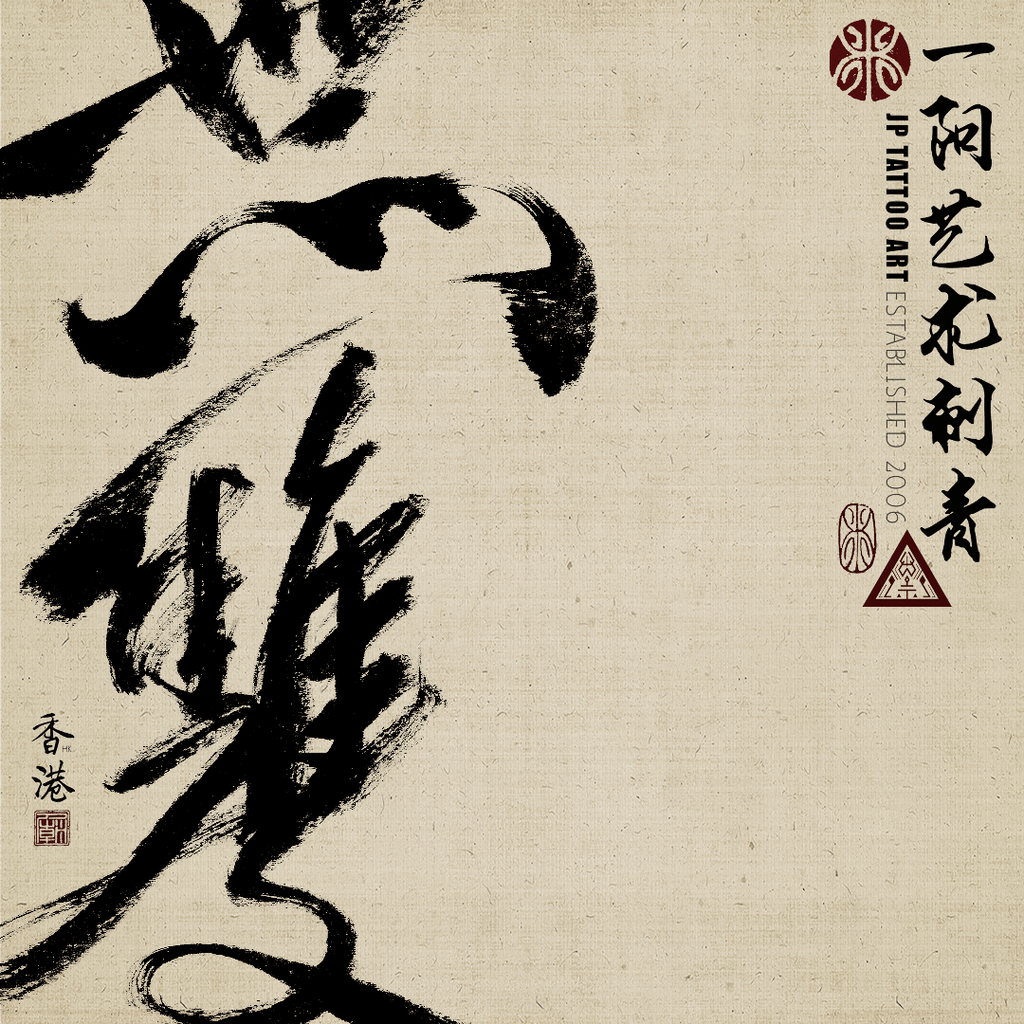 一阳艺术刺青
JP TATTOO ART ESTABLISHED 2006
無雙
香港
HK